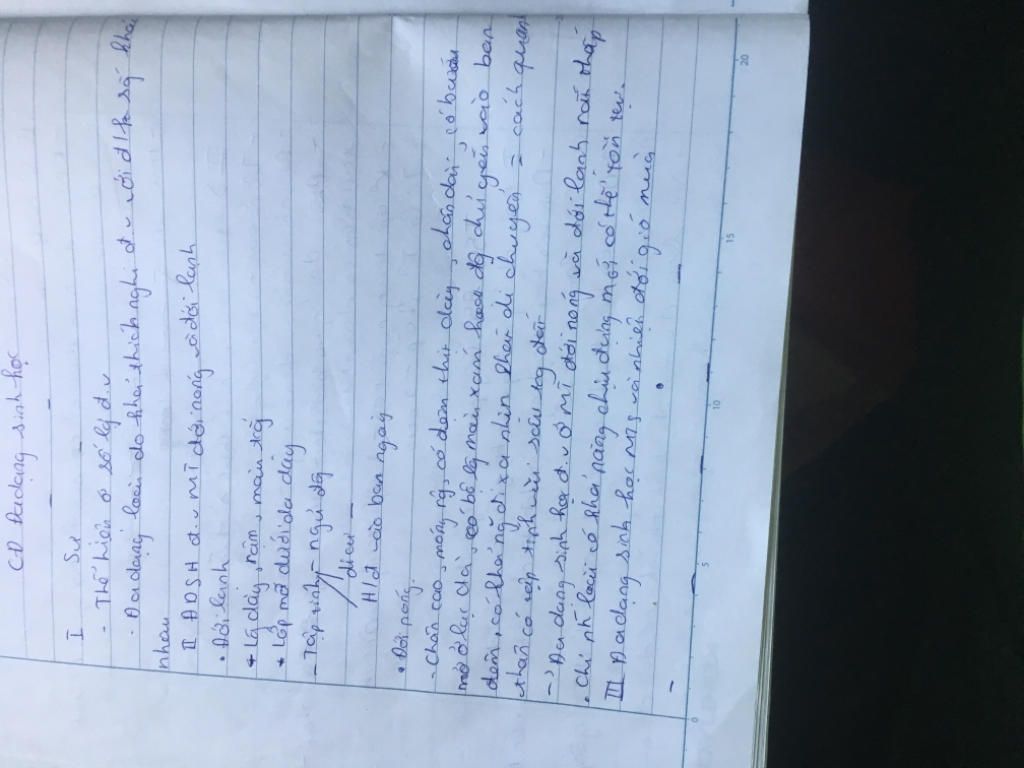 CĐ Đa dạng sinh học
I Sự
- Thể hiện ở số lg đ.v
- Đa dạng loài do khả thích nghi đ.v với đ/k sg khác
nhau
II ĐDSH đ.v mt đới nóng và đới lạnh
• Đới lạnh
+ Lá dày, rậm, màu trắg
+ Lớp mỡ dưới da dày
- Tập tính - ngủ đg
di cư
H/đ vào ban ngày
• Đới nóng
- Chân cao, móng rg, có đệm thịt dày, chân dài, có bướu
mỡ ở lạc đà, có bộ lg màu xám hoạt độg chủ yếu vào ban
đêm, có khả năg đi xa nhịn khát di chuyển = cách quăng
thân có tập tính vùi sâu trg đất
-> Đa dạng sinh học đ.v ở mt đới nóng và đới lạnh rất thấp
• Chỉ nh loài có khả năng chịu đựng mới có thể tồn tại.
III Đa dạng sinh học MTS và nhiệt đới gió mùa
-
0
5
10
15
20